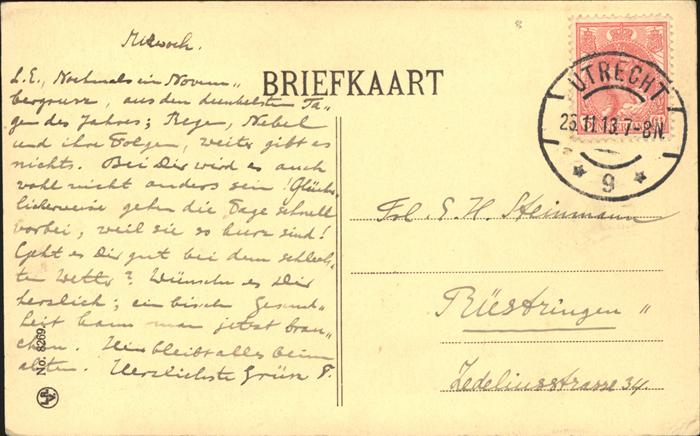 Mitwoch.
L.E., Nochmals ein Novem„
bergruss, aus den dunkelsten Ta„
gen des Jahres; Regen, Nebel
und ihre Folgen, weiter gibt es
nichts. Bei Dir wird es auch
wohl nicht anders sein! Glück„
licherweise gehen die Tage schnell
vorbei, weil sie so kurz sind!
Geht es Dir gut bei dem schlech„
ten Wetter? Wünsche es Dir
herzlich; ein bisch. Gesund„
heit kann man jetzt brau„
chen. Hier bleibt alles beim
alten. Herzlichste Grüsse F.
BRIEFKAART
UTRECHT
25.11.13 7-8N.
9
Frl. E. H. Steinmann
Rüstringen „
Zedeliusstrasse 34.
No. 8269